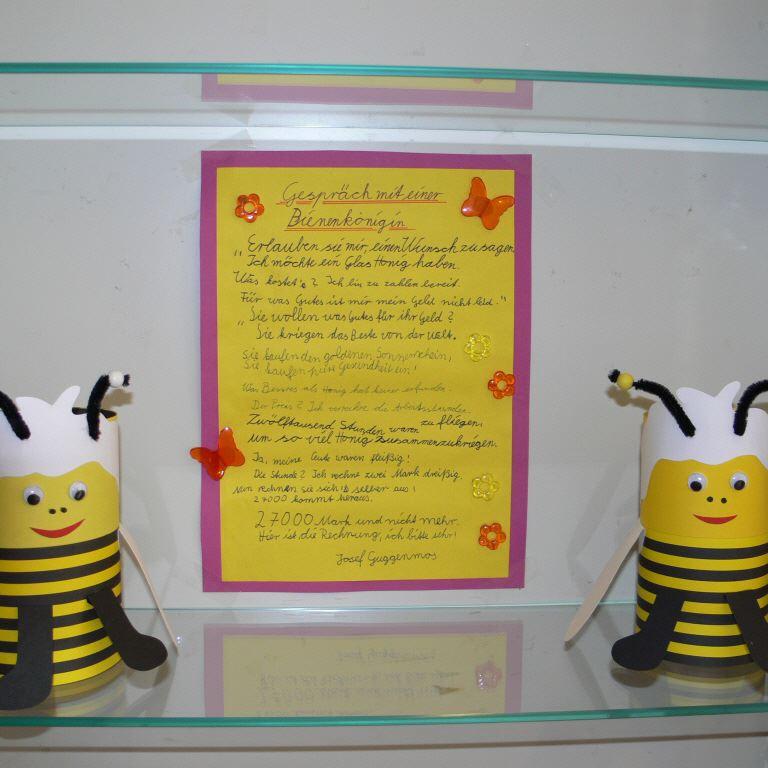 Gespräch mit einer
Bienenkönigin
„Erlauben sie mir, einen Wunsch zu sagen
Ich möchte ein Glas Honig haben.
Was kostet's? Ich bin zu zahlen bereit.
Für was Gutes ist mir mein Geld nicht leid."
"Sie wollen was Gutes für ihr Geld?
Sie kriegen das Beste von der Welt.
Sie kaufen den goldenen Sonnenschein,
Sie kaufen pure Gesundheit ein!
Was Bessres als Honig hat keiner erfunden.
Der Preis? Ich verrechne die Arbeitsstunden.
Zwölftausend Stunden waren zu fliegen,
um so viel Honig zusammenzukriegen.
Ja, meine Leute waren fleißig!
Die Stunde? Ich rechne zwei Mark dreißig.
Nun rechnen Sie sich's selber aus!
27000 kommt heraus.
27000 Mark und nicht mehr.
Hier ist die Rechnung, ich bitte sehr!
Josef Guggenmos